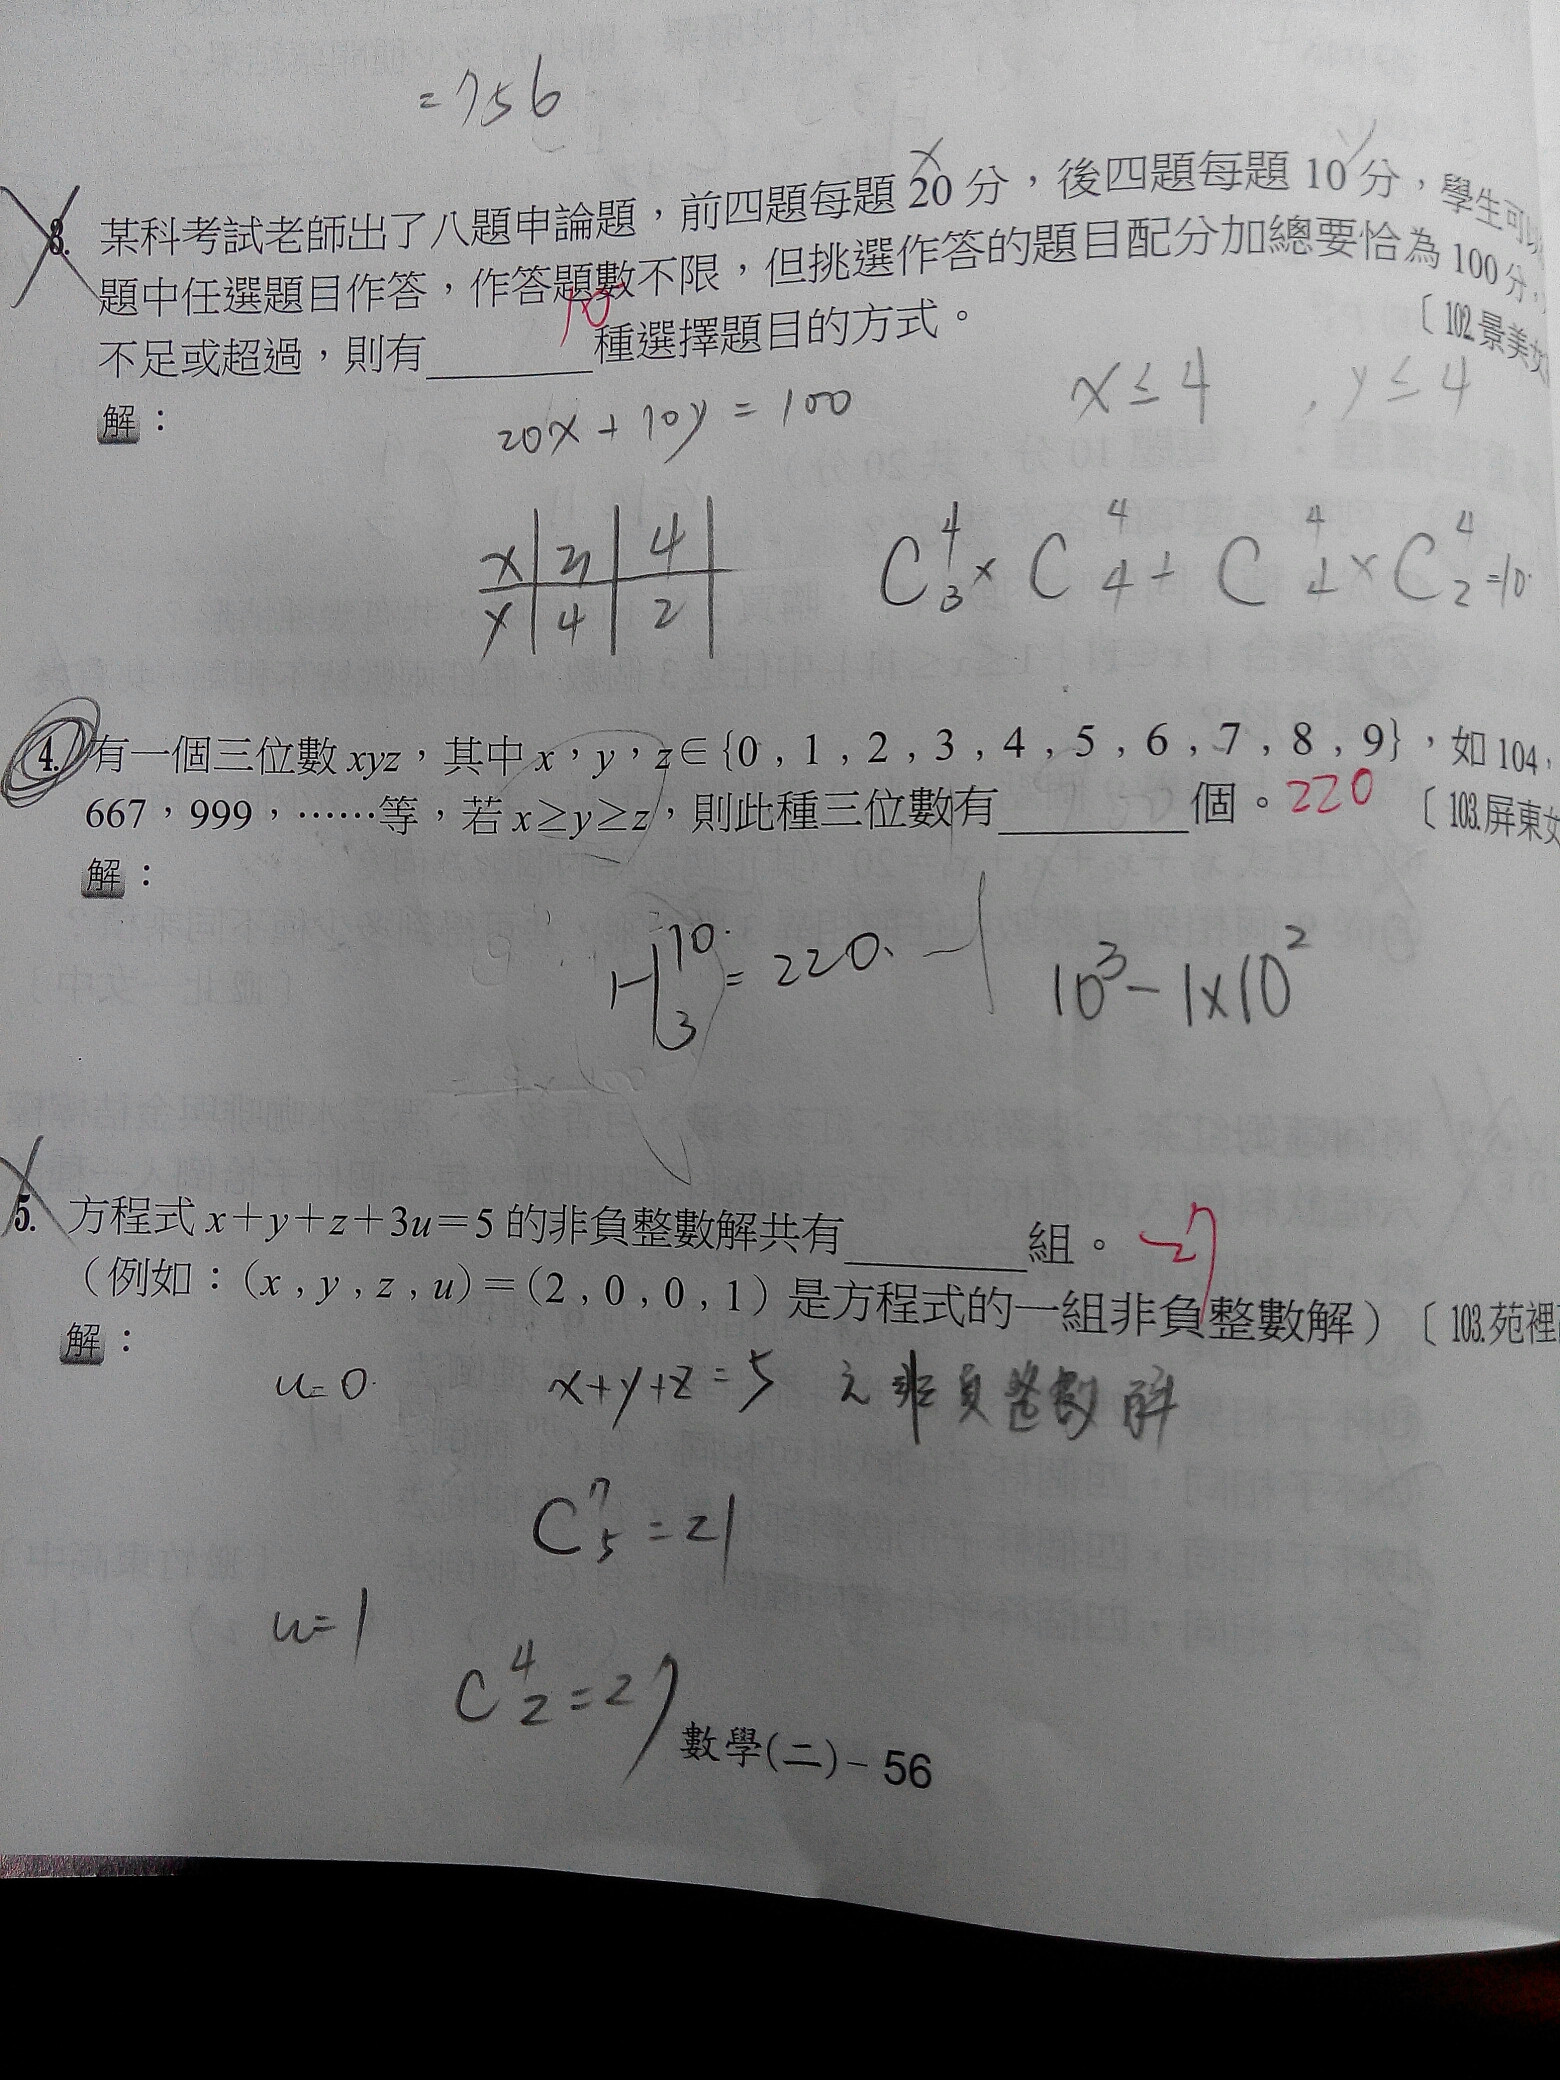 =756
3. 某科考試老師出了八題申論題，前四題每題20分，後四題每題10分，學生可以
題中任選題目作答，作答題數不限，但挑選作答的題目配分加總要恰為100分，
不足或超過，則有______種選擇題目的方式。
10
〔102.景美女
解：
20x+10y=100
x≤4 , y≤4
x 3 4
y 4 2
C⁴₃×C⁴₄+C⁴₄×C⁴₂=10
4. 有一個三位數xyz，其中x，y，z∈{0，1，2，3，4，5，6，7，8，9}，如104，
667，999，……等，若x≥y≥z，則此種三位數有______個。220 〔103.屏東女
解：
H¹⁰₃=220
10³-1×10²
5. 方程式x+y+z+3u=5的非負整數解共有______組。27
（例如：(x,y,z,u)=(2,0,0,1)是方程式的一組非負整數解）〔103.苑裡
解：
u=0
x+y+z=5 之非負整數解
C⁷₅=21
u=1
C⁴₂=27
數學(二)-56